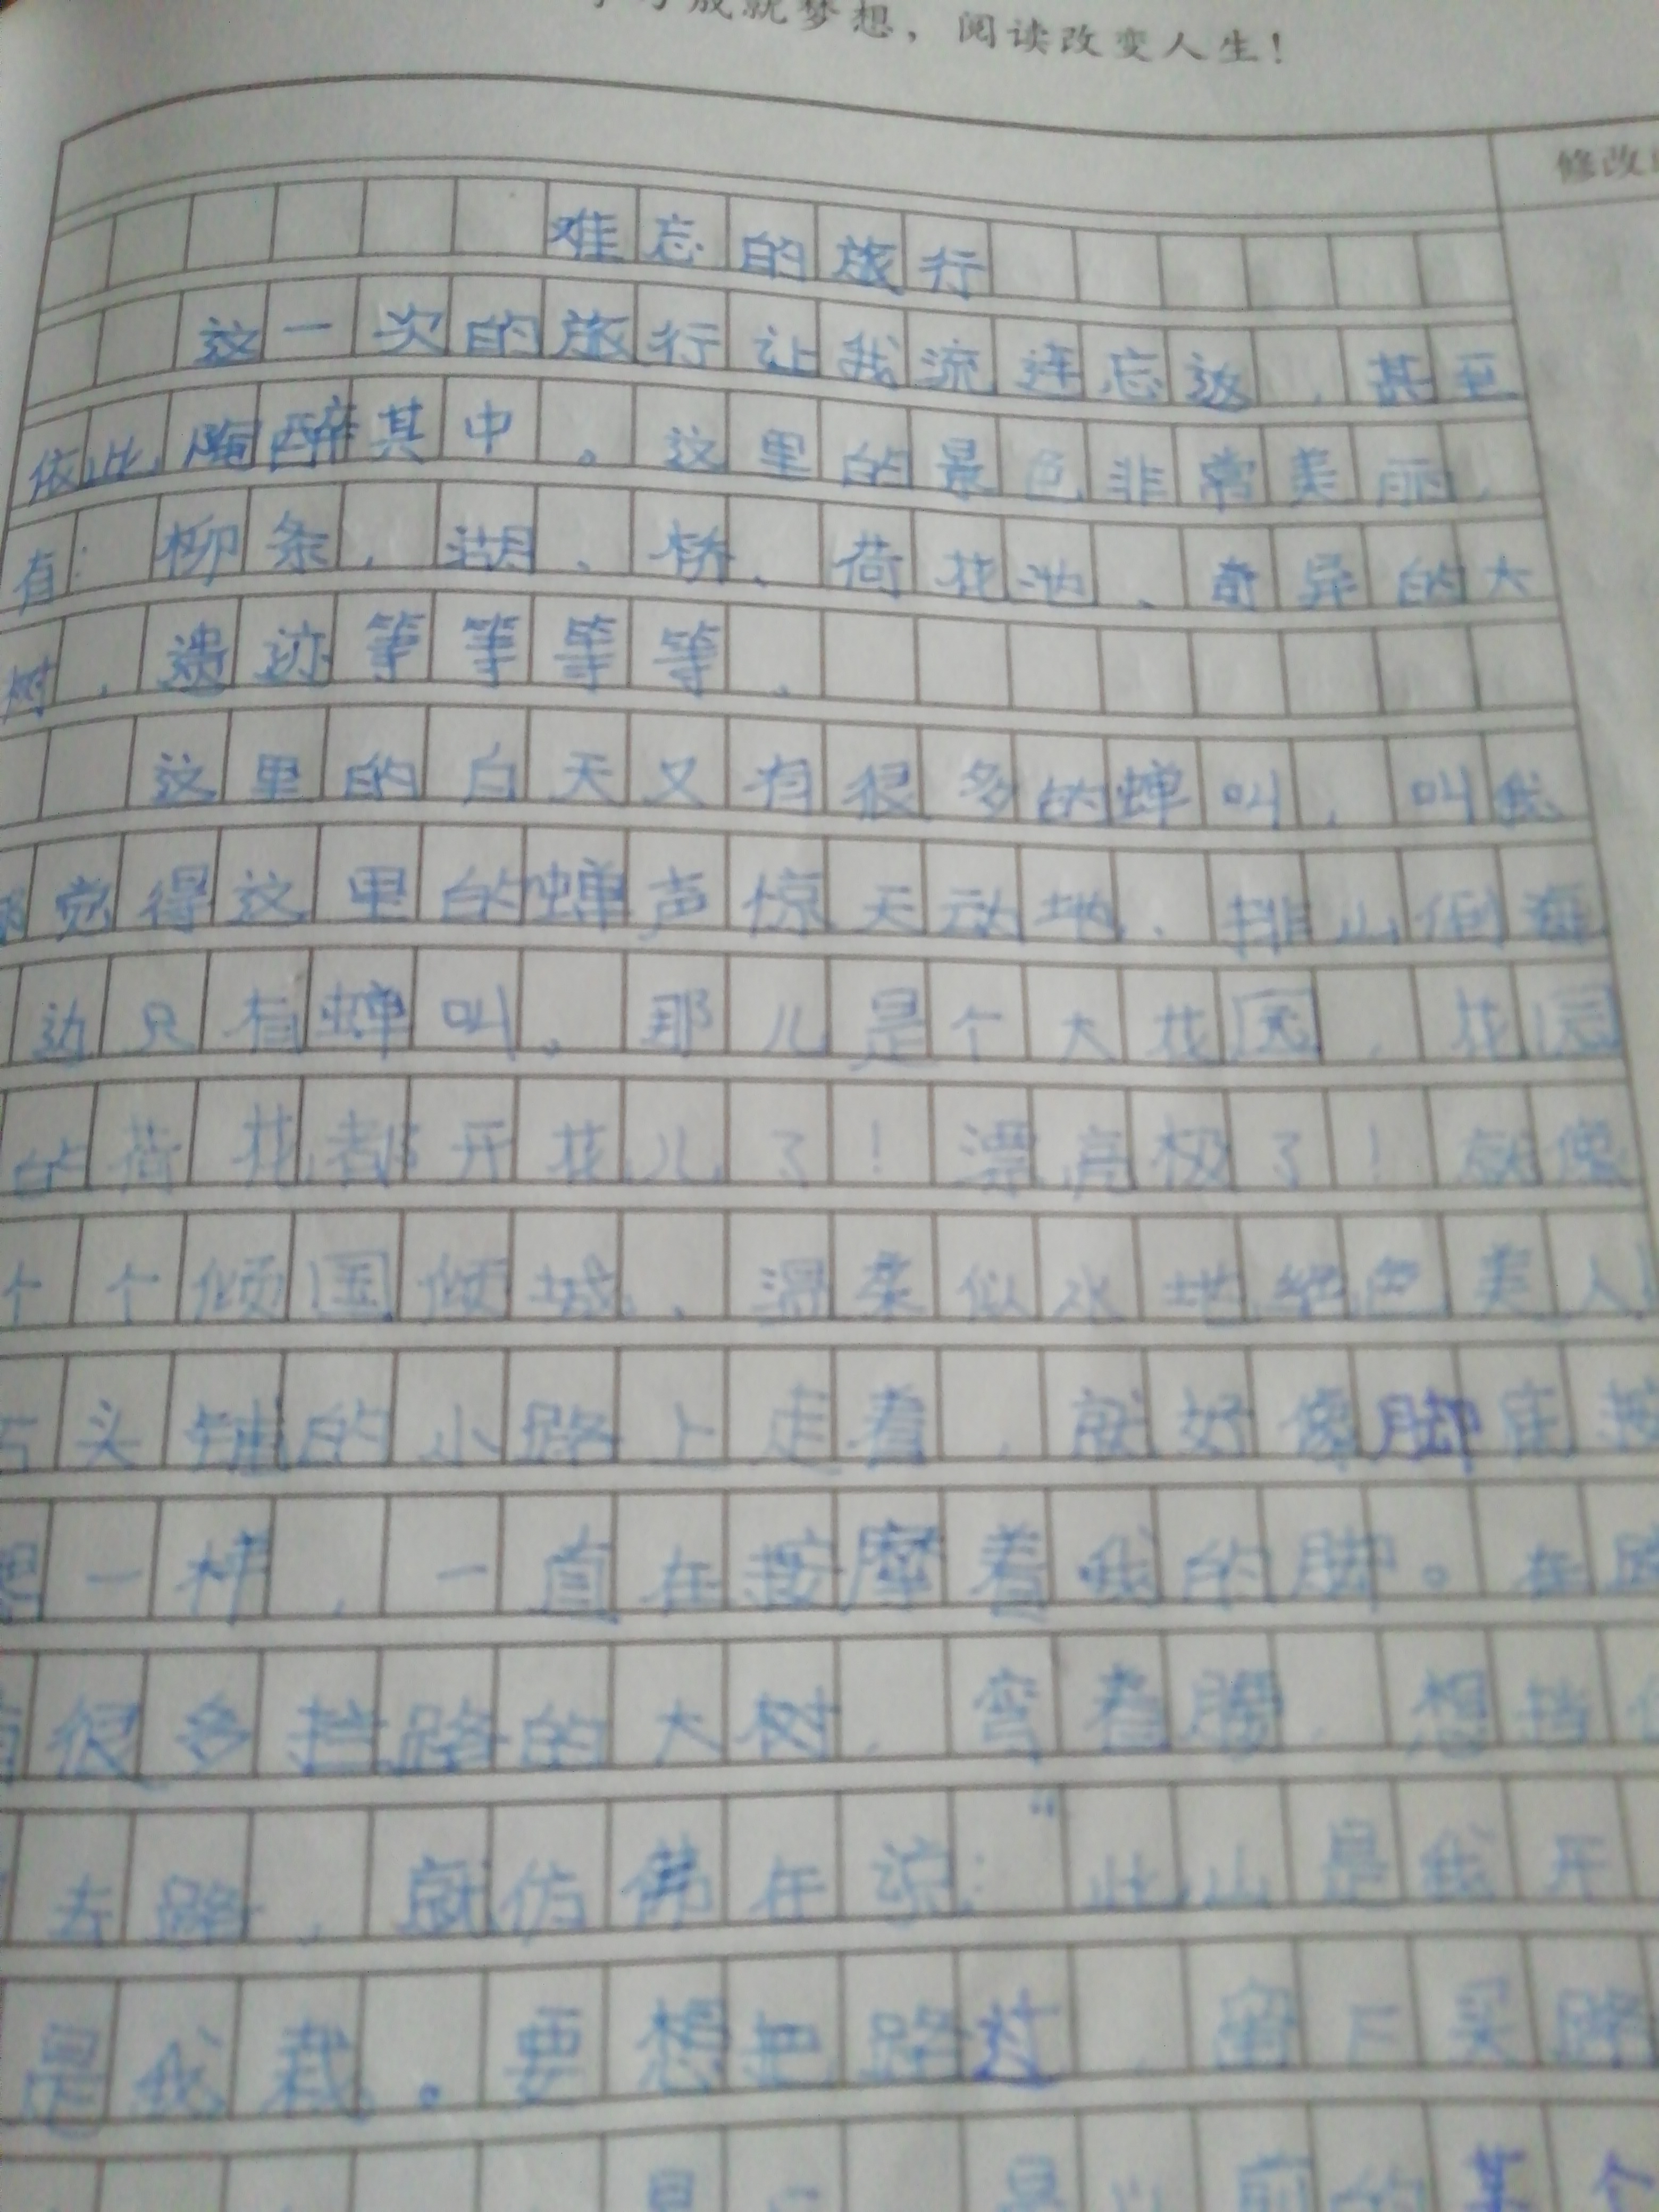 成就梦想，阅读改变人生！
修改
难忘的旅行
这一次的旅行让我流连忘返，甚至
依此陶醉其中。这里的景色非常美丽，
有：柳条，湖、桥、荷花池、奇异的大
树，遗迹等等等等。
这里的白天又有很多的蝉叫，叫我
觉得这里的蝉声惊天动地、排山倒海
边只有蝉叫。那儿是个大花园，花园
的荷花都开花儿了！漂亮极了！就像
个个倾国倾城、温柔似水地绝色美人
石头铺的小路上走着，就好像脚底按
一样，一直在按摩着我的脚。在路
有很多拦路的大树，弯着腰，想挡住
去路，就仿佛在说：“此山是我开
是我栽。要想把路过，留下买路
是以前的某个